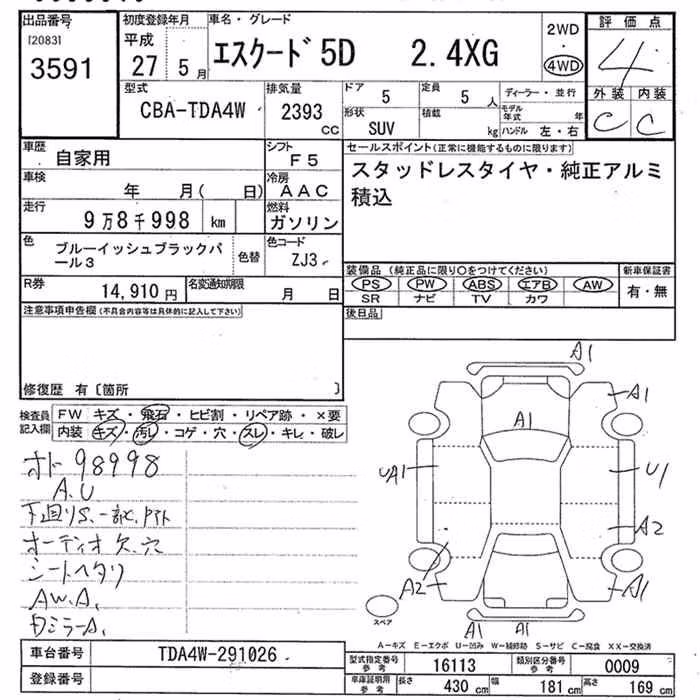 出品番号
[2083]
3591
初度登録年月
平成
27 5 月
車名・グレード
エスクード 5D 2.4XG
2WD
・
4WD
評価点
4
外装 内装
C C
型式
CBA-TDA4W
排気量
2393
CC
ドア
5
定員
5 人
形状
SUV
積載
kg
ディーラー・並行
モデル年式 年
ハンドル 左・右
車歴
自家用
シフト
F5
車検
年 月( 日)
冷房
AAC
走行
9万8千998 km
燃料
ガソリン
色
ブルーイッシュブラックパール3
色替
色コード
ZJ3
R券
14,910 円
名変通知期限
月 日
セールスポイント(正常に機能するものに限ります)
スタッドレスタイヤ・純正アルミ
積込
装備品(純正品に限り○をつけてください)
PS PW ABS エアB AW
SR ナビ TV カワ
新車保証書
有・無
後日品
注意事項申告欄(不具合内容等は具体的に記入して下さい)
修復歴 有〔箇所 〕
検査員
記入欄
FW キズ・飛石・ヒビ割・リペア跡・×要
内装 キズ・汚レ・コゲ・穴・スレ・キレ・破レ
オド 98998
A.U
下廻りS.一部
オーディオ欠.穴
シートヘタリ
AW.A.
ミラーA.
A1
A1
A1
UA1
U1
A2
A2
A1
A1
A1
スペア
A-キズ E-エクボ U-凹み W-補修跡 S-サビ C-腐食 XX-交換済
車台番号
TDA4W-291026
登録番号
型式指定番号
参考
16113
類別区分番号
参考
0009
車庫証明用
参考
長さ
430 cm
幅
181 cm
高さ
169 cm